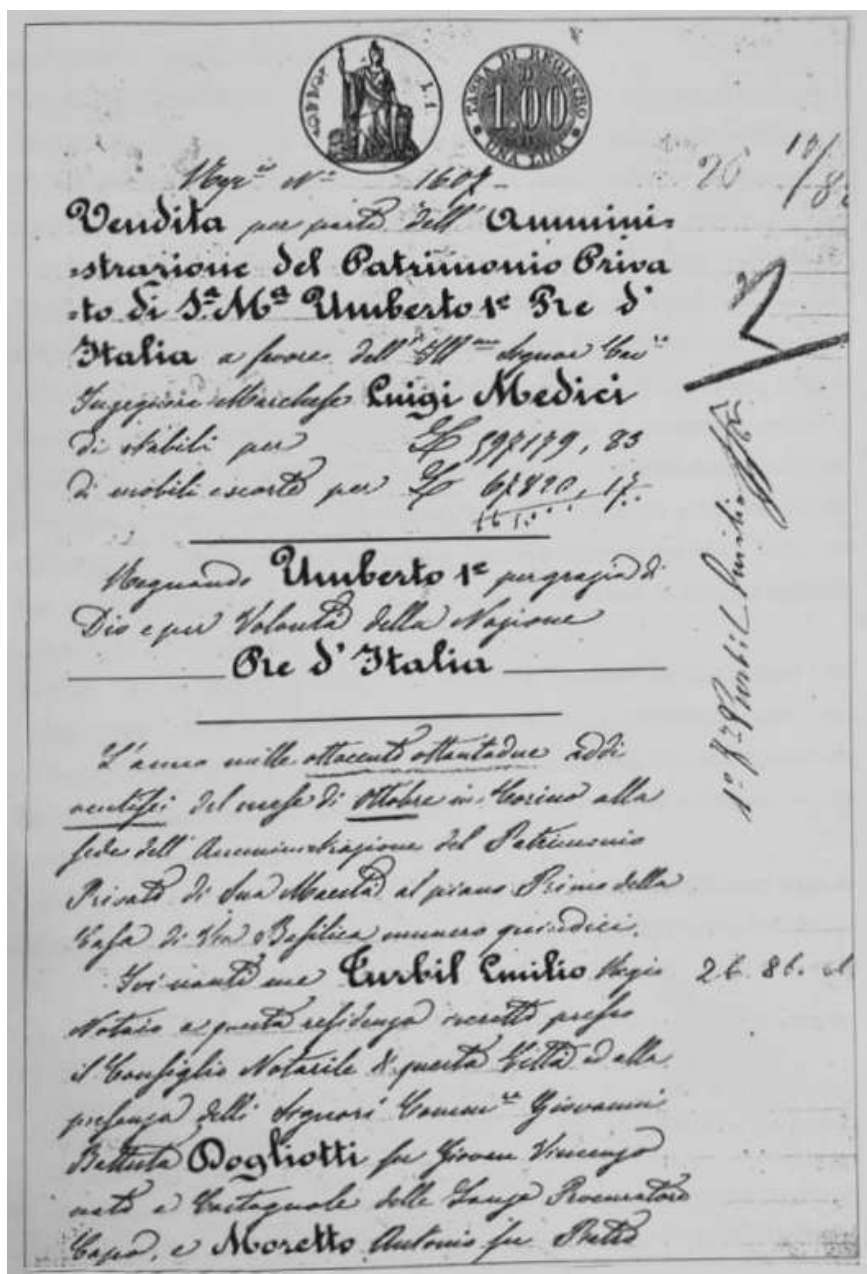 TASSA DI REGISTRO
L. 1.
D
1.00
UNA LIRA
N.º 1607
Vendita per parte dell' Ammini=
=strazione del Patrimonio Priva
=to di S.ª M.ª Umberto 1º Re d'
Italia a favore dell' Ill.mo Signor Cav.re
Ingegnere Marchese Luigi Medici
di stabili per £ 597179, 83
di mobili e scorte per £ 67820, 17
Regnando Umberto 1º per grazia di
Dio e per Volontà della Nazione
Re d' Italia
L'anno mille ottocento ottantadue addi
ventisei del mese di Ottobre in Torino alla
sede dell' Amministrazione del Patrimonio
Privato di Sua Maestà al piano Primo della
Casa di Via Basilica numero quindici.
Ivi nanti me Turbil Emilio Regio
Notaio a questa residenza iscritto presso
il Consiglio Notarile di questa Città ed alla
presenza delli Signori Comm.re Giovanni
Battista Dogliotti fu Giovan Vincenzo
nato a Castagnole delle Lanze Procuratore
Capo, e Moretto Antonio fu Pietro
Turbil Emilio